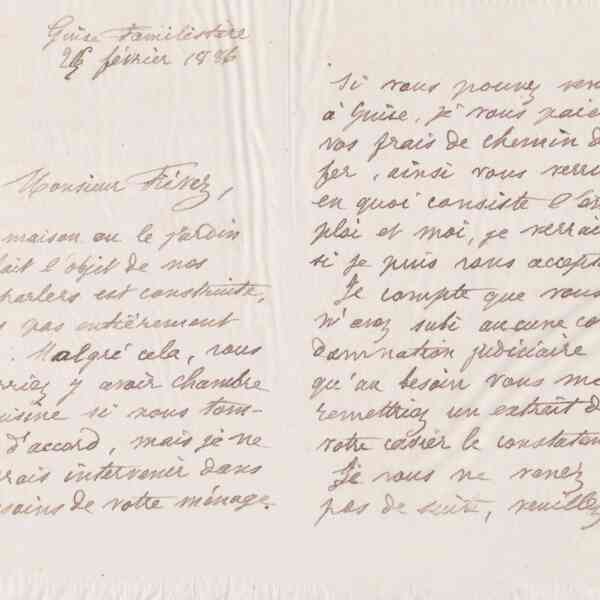 Guise Familistère
26 février 1886
Monsieur Févez,
maison ou le jardin
fait l'objet de nos
parlers est construite,
pas entièrement
. Malgré cela, vous
rriez y avoir chambre
uisine si nous tom-
d'accord, mais je ne
rais intervenir dans
soins de votre ménage.
Si vous pouvez ven
à Guise, je vous paie
vos frais de chemin d
fer, ainsi vous verri
en quoi consiste l'em
ploi et moi, je verrai
si je puis vous accept
Je compte que vous
n'avez subi aucune co
damnation judiciaire
qu'au besoin vous m
remettriez un extrait d
votre casier le constatan
Si vous ne venez
pas de suite, veuillez